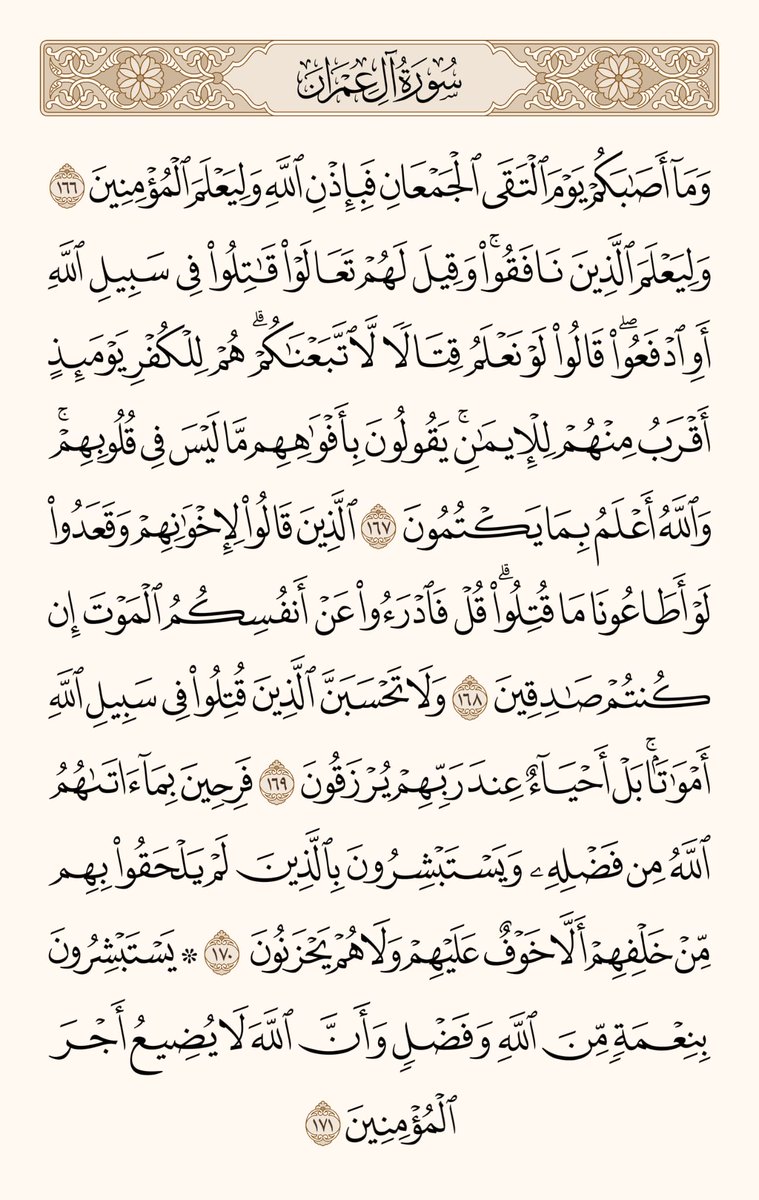 سُورَةُ آلِ عِمْرَانَ
وَمَآ أَصَٰبَكُمْ يَوْمَ ٱلْتَقَى ٱلْجَمْعَانِ فَبِإِذْنِ ٱللَّهِ وَلِيَعْلَمَ ٱلْمُؤْمِنِينَ ١٦٦
وَلِيَعْلَمَ ٱلَّذِينَ نَافَقُوا۟ۚ وَقِيلَ لَهُمْ تَعَالَوْا۟ قَٰتِلُوا۟ فِى سَبِيلِ ٱللَّهِ
أَوِ ٱدْفَعُوا۟ۖ قَالُوا۟ لَوْ نَعْلَمُ قِتَالًا لَّٱتَّبَعْنَٰكُمْۗ هُمْ لِلْكُفْرِ يَوْمَئِذٍ
أَقْرَبُ مِنْهُمْ لِلْإِيمَٰنِۚ يَقُولُونَ بِأَفْوَٰهِهِم مَّا لَيْسَ فِى قُلُوبِهِمْۚ
وَٱللَّهُ أَعْلَمُ بِمَا يَكْتُمُونَ ١٦٧ ٱلَّذِينَ قَالُوا۟ لِإِخْوَٰنِهِمْ وَقَعَدُوا۟
لَوْ أَطَاعُونَا مَا قُتِلُوا۟ۗ قُلْ فَٱدْرَءُوا۟ عَنْ أَنفُسِكُمُ ٱلْمَوْتَ إِن
كُنتُمْ صَٰدِقِينَ ١٦٨ وَلَا تَحْسَبَنَّ ٱلَّذِينَ قُتِلُوا۟ فِى سَبِيلِ ٱللَّهِ
أَمْوَٰتًۢاۚ بَلْ أَحْيَآءٌ عِندَ رَبِّهِمْ يُرْزَقُونَ ١٦٩ فَرِحِينَ بِمَآ ءَاتَىٰهُمُ
ٱللَّهُ مِن فَضْلِهِۦ وَيَسْتَبْشِرُونَ بِٱلَّذِينَ لَمْ يَلْحَقُوا۟ بِهِم
مِّنْ خَلْفِهِمْ أَلَّا خَوْفٌ عَلَيْهِمْ وَلَا هُمْ يَحْزَنُونَ ١٧٠ * يَسْتَبْشِرُونَ
بِنِعْمَةٍ مِّنَ ٱللَّهِ وَفَضْلٍ وَأَنَّ ٱللَّهَ لَا يُضِيعُ أَجْرَ
ٱلْمُؤْمِنِينَ ١٧١